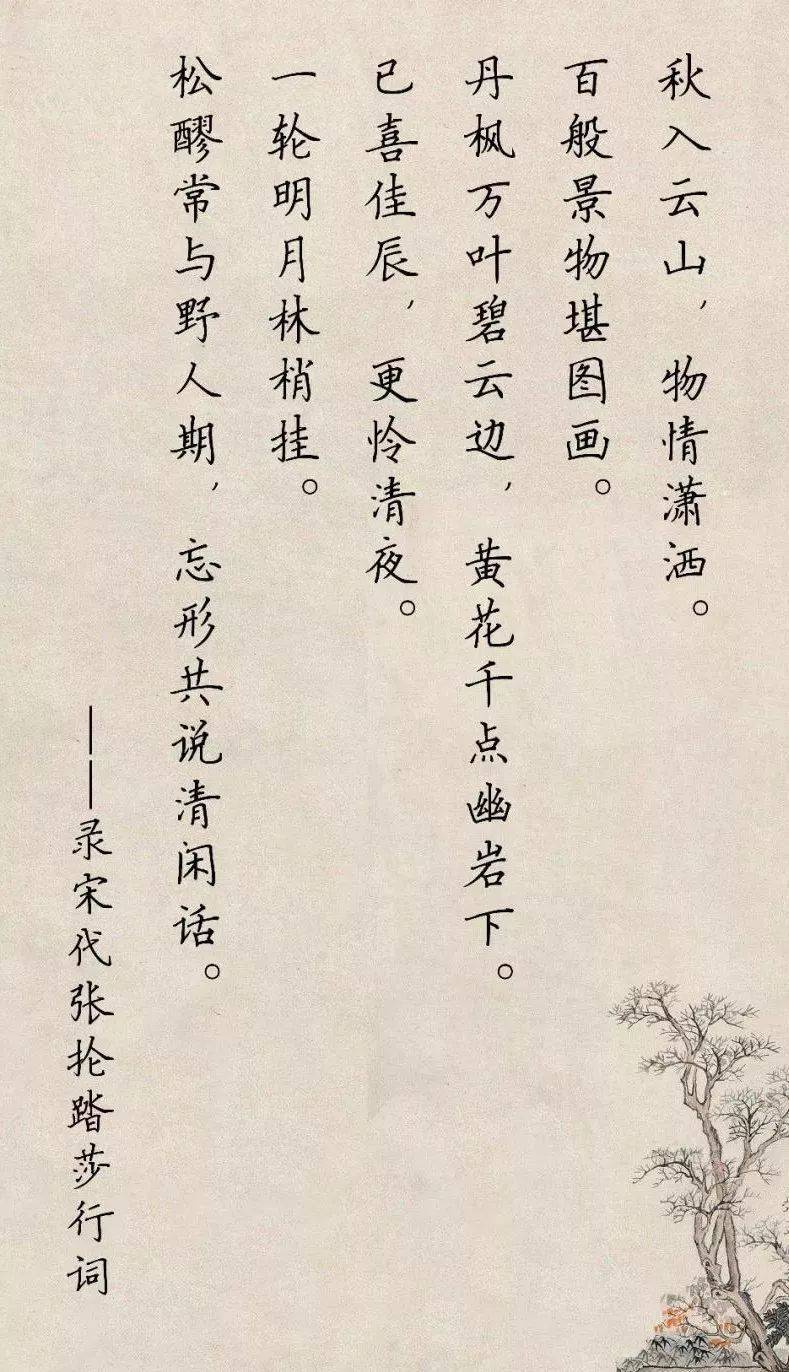 秋入云山，物情潇洒。
百般景物堪图画。
丹枫万叶碧云边，黄花千点幽岩下。
已喜佳辰，更怜清夜。
一轮明月林梢挂。
松醪常与野人期，忘形共说清闲话。
——录宋代张抡踏莎行词